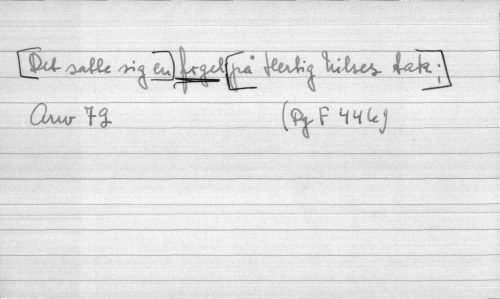 [Det satte sig en] fogel [på Hertig Nilses tak;]
Arw 72
(Pg F 44k)